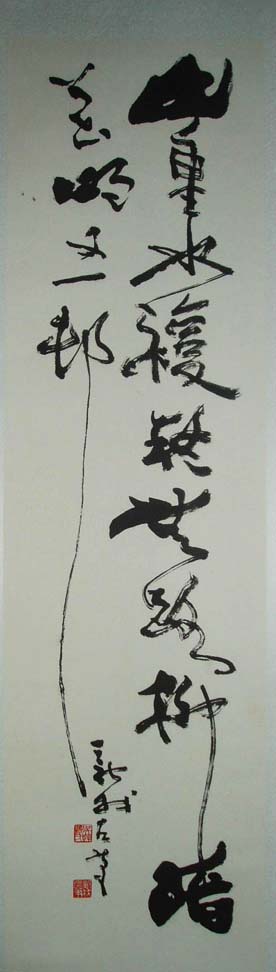 山重水複疑无路柳暗
花明又一邨